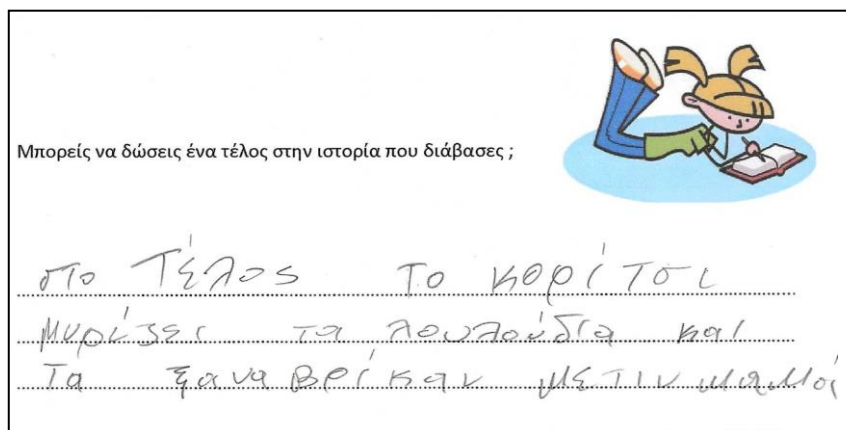 Μπορείς να δώσεις ένα τέλος στην ιστορία που διάβασες ;
στο Τέλος το κορίτσι
μυρίζει τα λουλούδια και
Τα ξαναβρίκαν με τιν μαμά